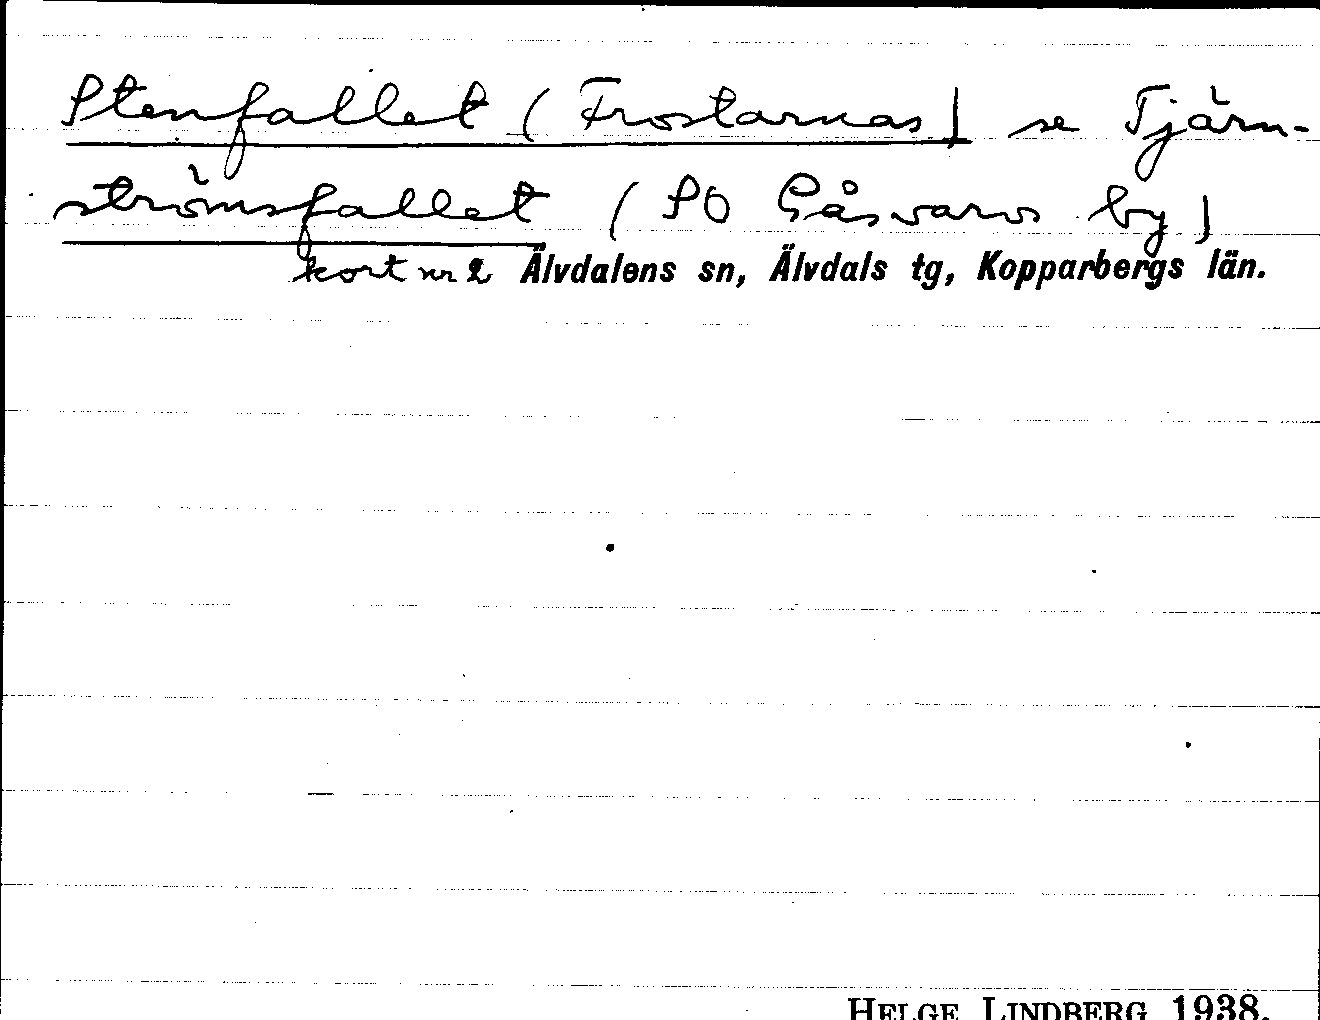 Stenfallet (Frostarnas) se Tjärn-
strömsfallet (SO Gåsvarvs by)
kort nr 2 Älvdalens sn, Älvdals tg, Kopparbergs län.
HELGE LINDBERG 1938.